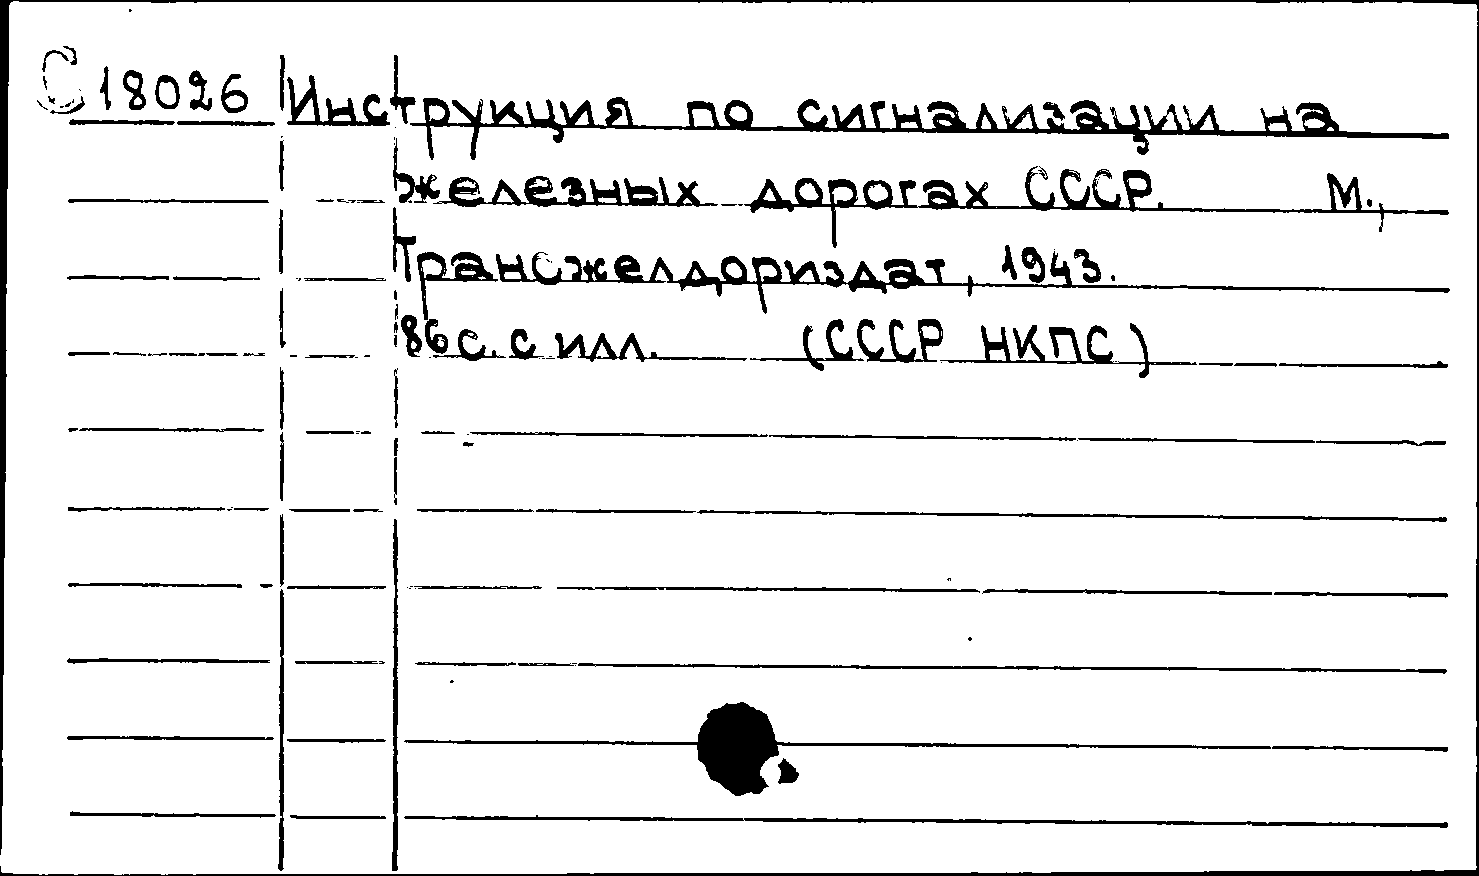 С 18026 Инструкция по сигнализации на
железных дорогах СССР. М.,
Трансжелдориздат, 1943.
86 с. с илл. (СССР НКПС)